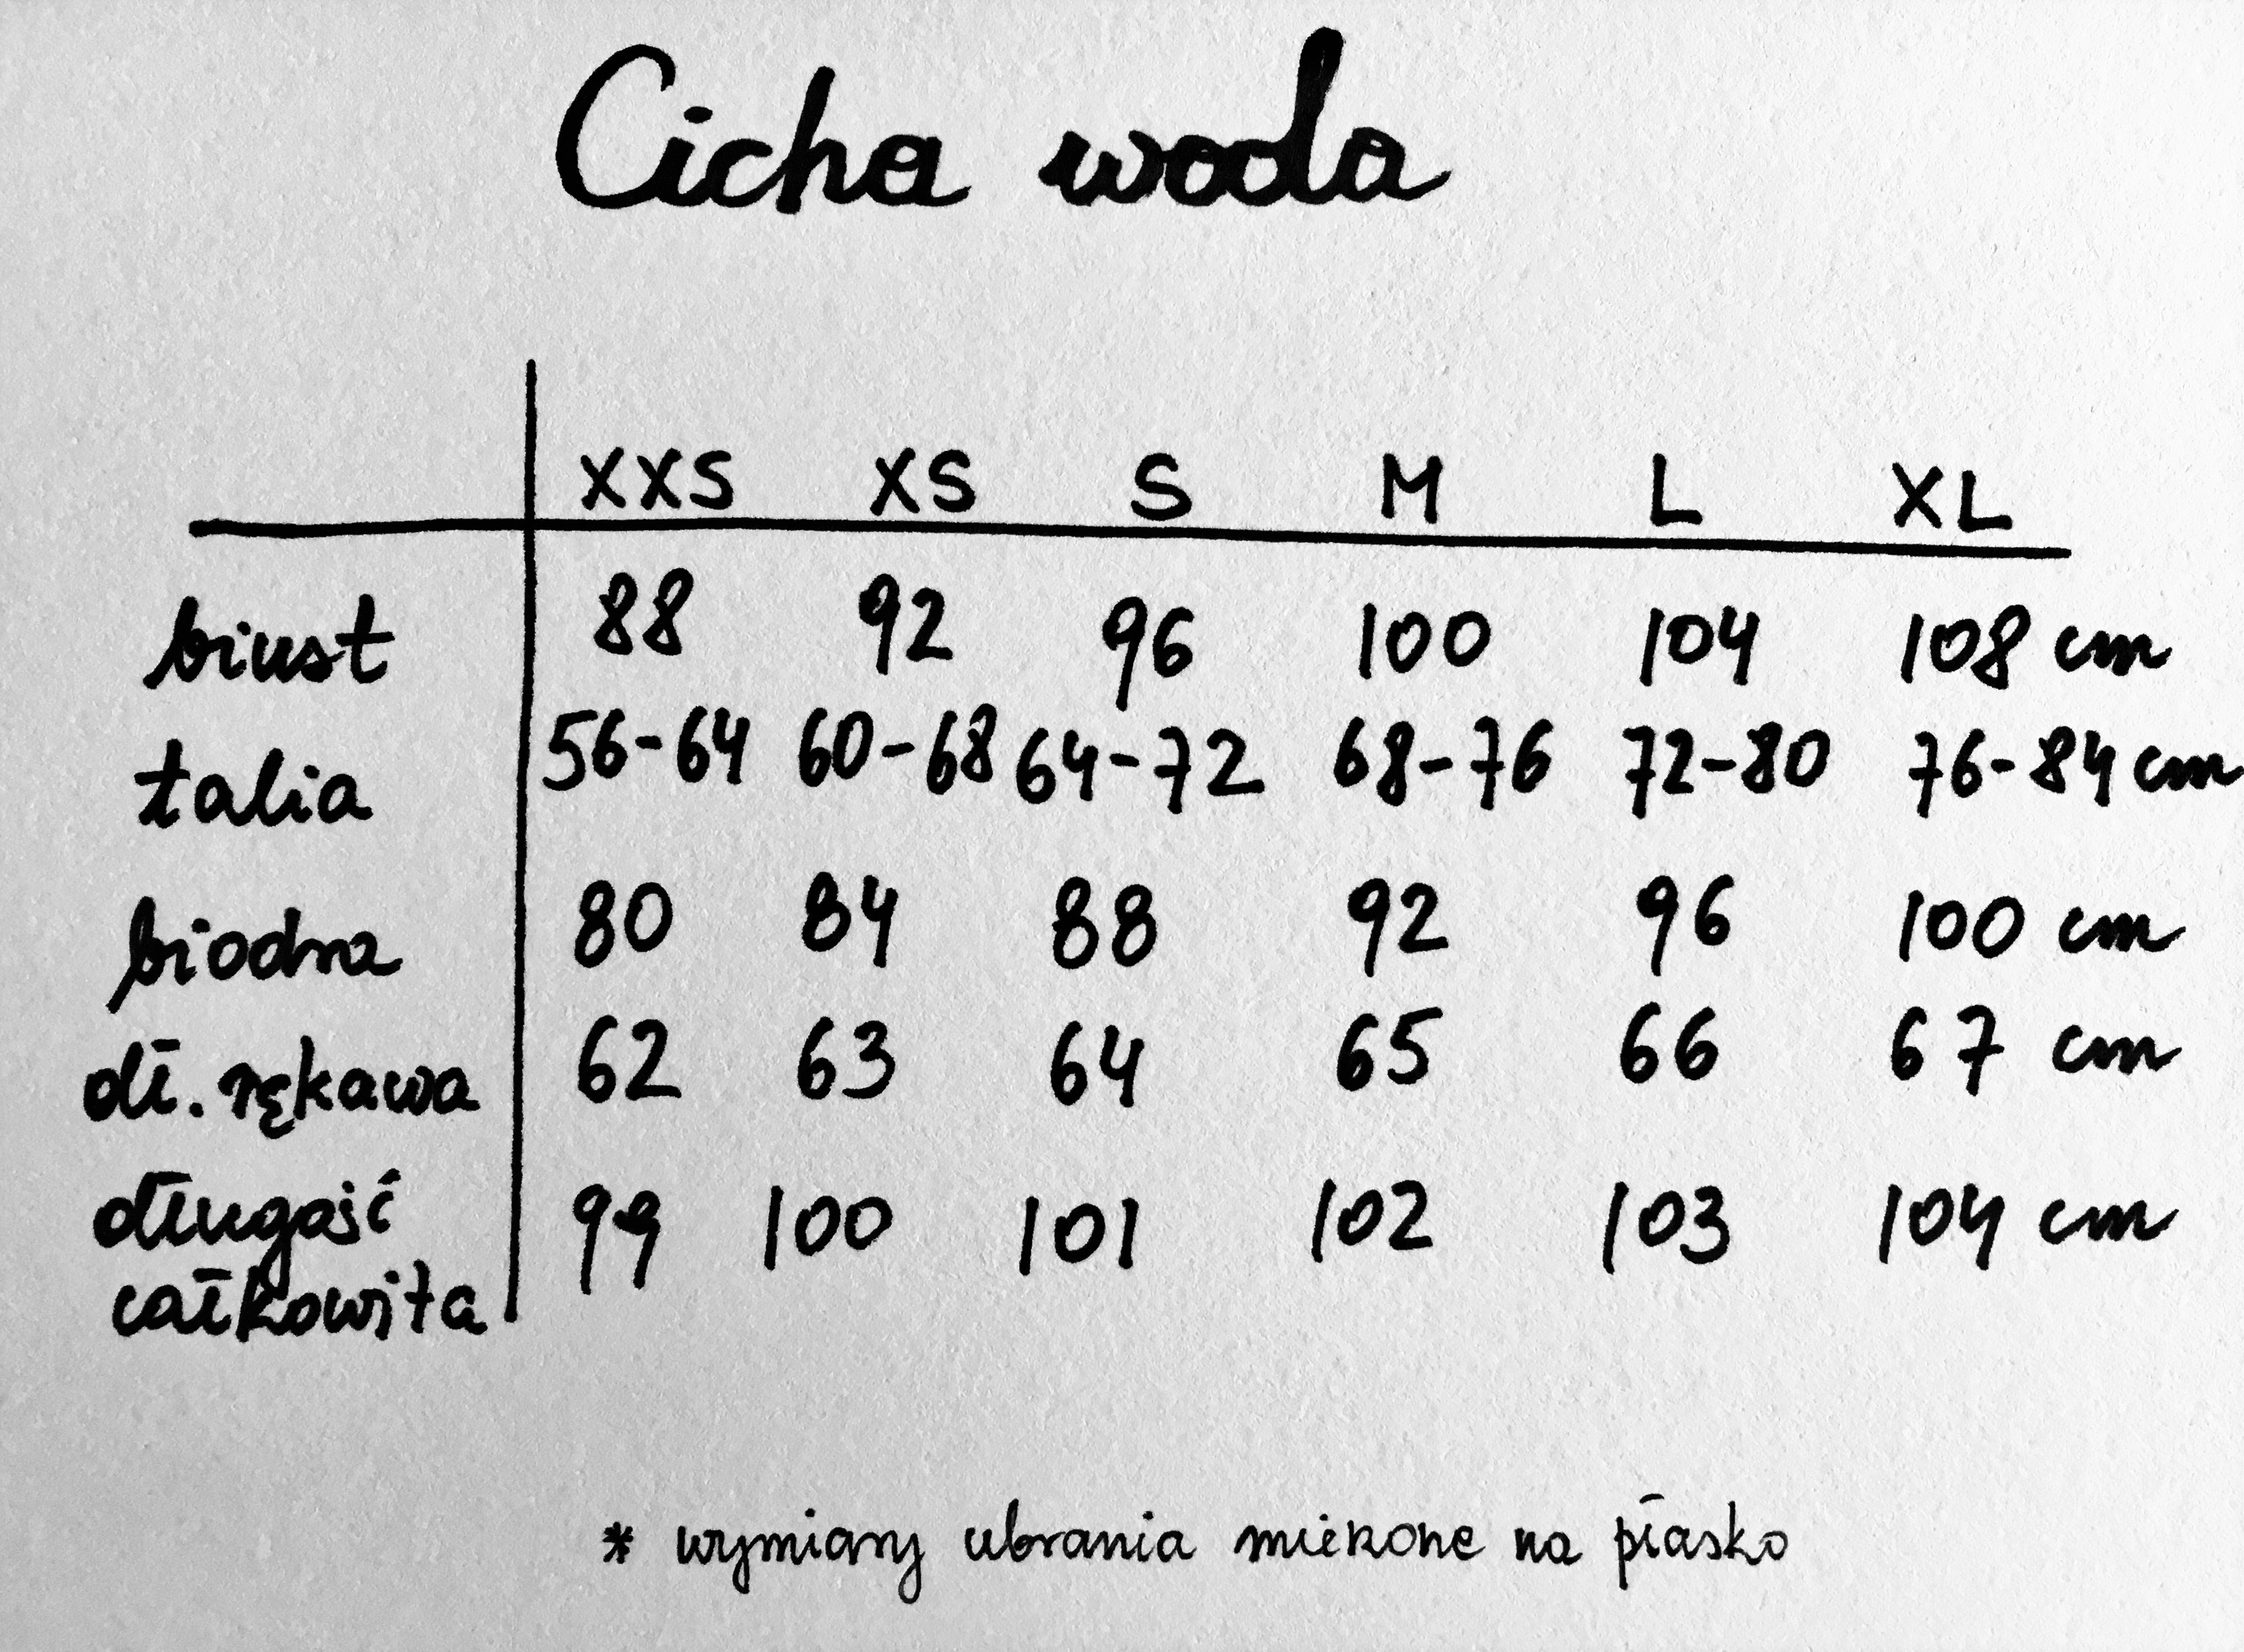 Cicha woda
XXS XS S M L XL
biust 88 92 96 100 104 108 cm
talia 56-64 60-68 64-72 68-76 72-80 76-84 cm
biodra 80 84 88 92 96 100 cm
dł. rękawa 62 63 64 65 66 67 cm
długość 99 100 101 102 103 104 cm
całkowita
* wymiary ubrania mierzone na płasko